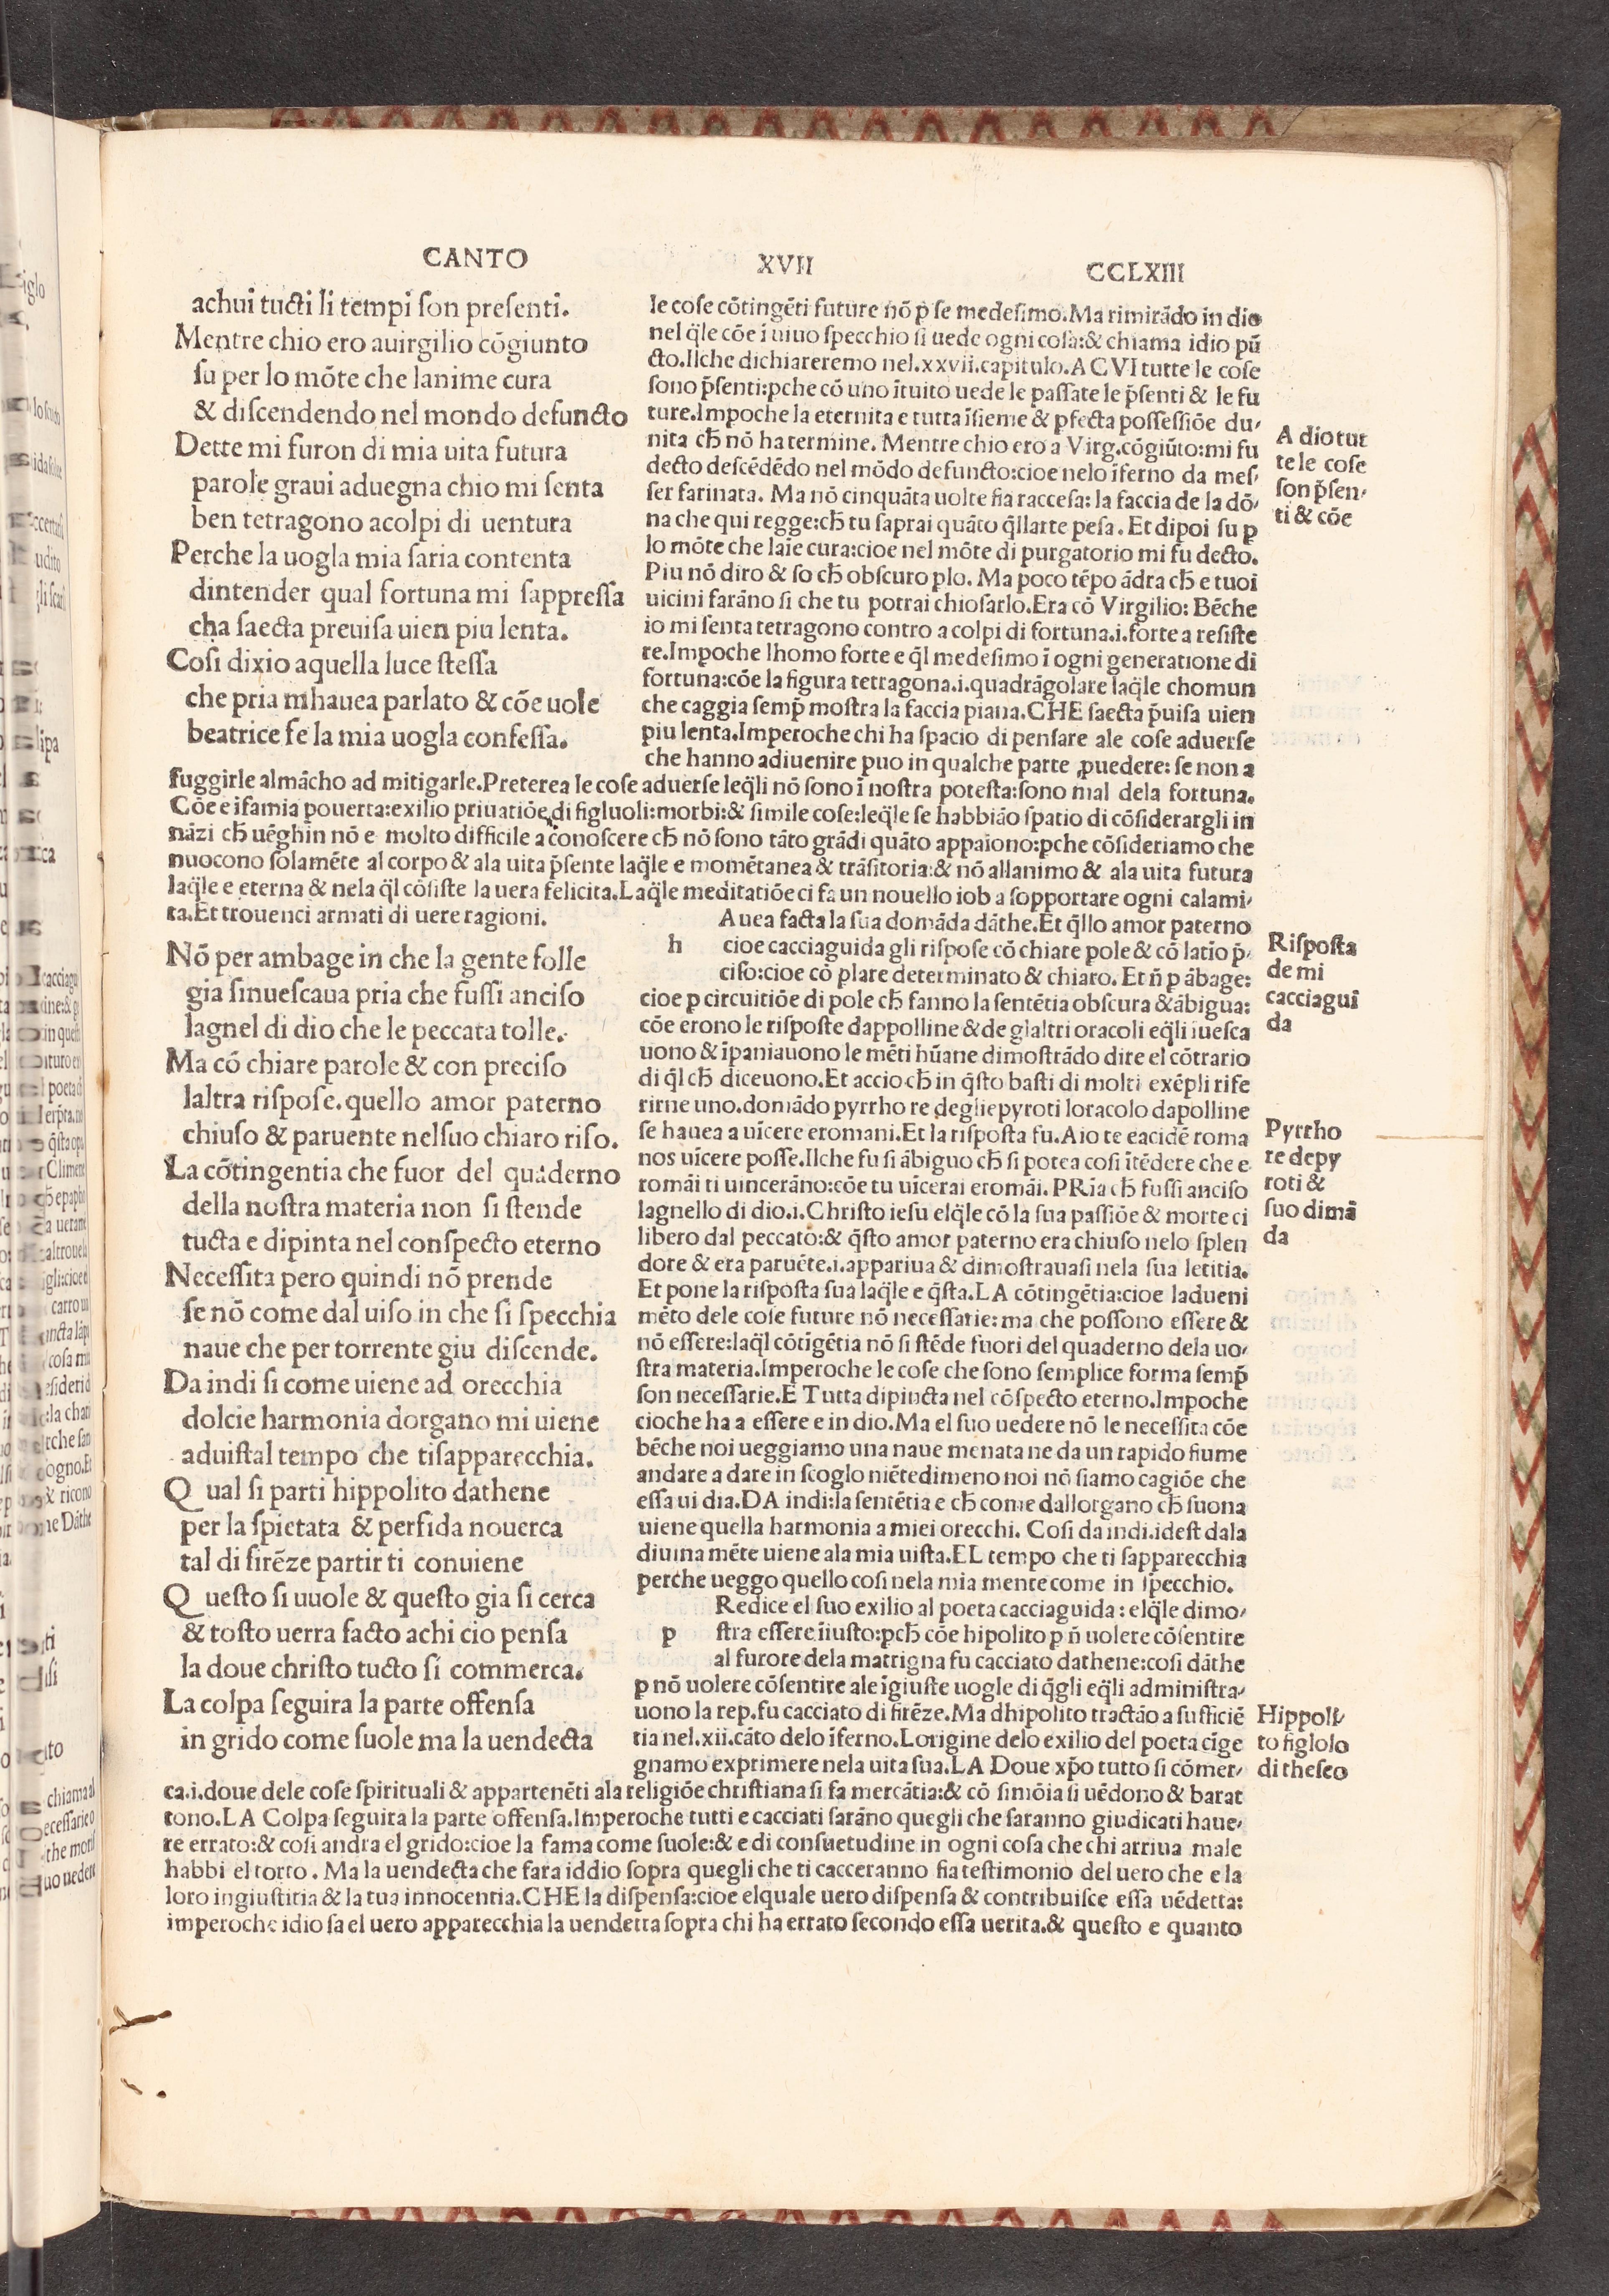 CANTO XVII CCLXIII
achui tucti li tempi son presenti.
Mentre chio ero auirgilio cōgiunto
su per lo mōte che lanime cura
& discendendo nel mondo defuncto
Dette mi furon di mia uita futura
parole graui aduegna chio mi senta
ben tetragono acolpi di uentura
Perche la uogla mia saria contenta
dintender qual fortuna mi sappressa
cha saecta preuisa uien piu lenta.
Cosi dixio aquella luce stessa
che pria mhauea parlato & cōe uole
beatrice fe la mia uogla confessa.
le cose cōtingēti future nō p̄ se medesimo. Ma rimirādo in dio
nel q̄le cōe ī uiuo specchio si uede ogni cosa:& chiama idio pū
cto. Ilche dichiareremo nel.xxvii.capitulo. A CVI tutte le cose
sono p̄senti:pche cō uno ītuito uede le passate le p̄senti & le fu
ture. Impoche la eternita e tutta īsieme & pfecta possessiōe du,
nita ch̄ nō ha termine. Mentre chio ero a Virg.cōgiūto:mi fu
decto descēdēdo nel mōdo defuncto:cioe nelo īferno da mes,
ser farinata. Ma nō cinquāta uolte fia raccesa: la faccia de la dō,
na che qui regge:ch̄ tu saprai quāto q̄llarte pesa. Et dipoi su p
lo mōte che laīe cura:cioe nel mōte di purgatorio mi fu decto.
Piu nō diro & so ch̄ obscuro plo. Ma poco tēpo ādra ch̄ e tuoi
uicini farāno si che tu potrai chiosarlo. Era cō Virgilio: Bēche
io mi senta tetragono contro a colpi di fortuna.i.forte a resiste
re. Impoche lhomo forte e q̄l medesimo ī ogni generatione di
fortuna:cōe la figura tetragona.i.quadrāgolare laq̄le chomun
che caggia semp̄ mostra la faccia piana. CHE saecta p̄uisa uien
piu lenta. Imperoche chi ha spacio di pensare ale cose aduerse
che hanno adiuenire puo in qualche parte puedere: se non a
fuggirle almācho ad mitigarle. Preterea le cose aduerse leq̄li nō sono ī nostra potesta:sono mal dela fortuna.
Cōe e īfamia pouerta:exilio priuatiōe di figluoli:morbi:& simile cose:leq̄le se habbiāo spatio di cōsiderargli in
nāzi ch̄ uēghin nō e molto difficile a conoscere ch̄ nō sono tāto grādi quāto appaiono:pche cōsideriamo che
nuocono solamēte al corpo & ala uita p̄sente laq̄le e momētanea & trāsitoria:& nō allanimo & ala uita futura
laq̄le e eterna & nela q̄l cōsiste la uera felicita. Laq̄le meditatiōe ci fa un nouello iob a sopportare ogni calami,
ta. Et trouenci armati di uere ragioni.
A dio tut
te le cose
son p̄sen,
ti & cōe
Nō per ambage in che la gente folle
gia sinuescaua pria che fussi anciso
lagnel di dio che le peccata tolle.
Ma cō chiare parole & con preciso
laltra rispose.quello amor paterno
chiuso & paruente nelsuo chiaro riso.
La cōtingentia che fuor del quaderno
della nostra materia non si stende
tucta e dipinta nel conspecto eterno
Necessita pero quindi nō prende
se nō come dal uiso in che si specchia
naue che per torrente giu discende.
Da indi si come uiene ad orecchia
dolcie harmonia dorgano mi uiene
aduistal tempo che tisapparecchia.
Qual si parti hippolito dathene
per la spietata & perfida nouerca
tal di firēze partir ti conuiene
Questo si uuole & questo gia si cerca
& tosto uerra facto achi cio pensa
la doue christo tucto si commerca.
La colpa seguira la parte offensa
in grido come suole ma la uendecta
Auea facta la sua domāda dāthe. Et q̄llo amor paterno
h cioe cacciaguida gli rispose cō chiare pole & cō latio p̄,
ciso:cioe cō plare determinato & chiaro. Et n̄ p ābage:
cioe p circuitiōe di pole ch̄ fanno la sentētia obscura & ābigua:
cōe erono le risposte dappolline & de glaltri oracoli eq̄li iuesca
uono & īpaniauono le mēti hūane dimostrādo dire el cōtrario
di q̄l ch̄ diceuono. Et accio ch̄ in q̄sto basti di molti exēpli rife
rirne uno.domādo pyrrho re degliepyroti loracolo dapolline
se hauea a uīcere eromani. Et la risposta fu. Aio te eacidē roma
nos uīcere posse. Ilche fu si ābiguo ch̄ si potea cosi ītēdere che e
romāi ti uincerāno:cōe tu uīcerai eromāi. PRia ch̄ fussi anciso
lagnello di dio.i.Christo iesu elq̄le cō la sua passiōe & morte ci
libero dal peccato:& q̄sto amor paterno era chiuso nelo splen
dore & era paruēte.i.appariua & dimostrauasi nela sua letitia.
Et pone la risposta sua laq̄le e q̄sta. LA cōtingētia:cioe ladueni
mēto dele cose future nō necessarie: ma che possono essere &
nō essere:laq̄l cōtīgētia nō si stēde fuori del quaderno dela uo,
stra materia. Imperoche le cose che sono semplice forma semp̄
son necessarie. E Tutta dipincta nel cōspecto eterno. Impoche
cioche ha a essere e in dio. Ma el suo uedere nō le necessita cōe
bēche noi ueggiamo una naue menata ne da un rapido fiume
andare a dare in scoglo niētedimeno noi nō siamo cagiōe che
essa ui dia. DA indi:la sentētia e ch̄ come dallorgano ch̄ suona
uiene quella harmonia a miei orecchi. Cosi da indi.idest dala
diuina mēte uiene ala mia uista. EL tempo che ti sapparecchia
perche ueggo quello cosi nela mia mente come in specchio.
Redice el suo exilio al poeta cacciaguida: elq̄le dimo,
p stra essere īiusto:pch̄ cōe hipolito p n̄ uolere cōsentire
al furore dela matrigna fu cacciato dathene:cosi dāthe
p nō uolere cōsentire ale īgiuste uogle di q̄gli eq̄li administra,
uono la rep.fu cacciato di firēze. Ma dhipolito tractāo a sufficiē
tia nel.xii.cāto delo īferno. Lorigine delo exilio del poeta cīge
gnamo exprimere nela uita sua. LA Doue xp̄o tutto si cōmer,
ca.i.doue dele cose spirituali & appartenēti ala religiōe christiana si fa mercātia:& cō simōia si uēdono & barat
tono. LA Colpa seguita la parte offensa. Imperoche tutti e cacciati sarāno quegli che saranno giudicati haue,
re errato:& cosi andra el grido:cioe la fama come suole:& e di consuetudine in ogni cosa che chi arriua male
habbi el torto. Ma la uendecta che fara iddio sopra quegli che ti cacceranno fia testimonio del uero che e la
loro ingiustitia & la tua innocentia. CHE la dispensa:cioe elquale uero dispensa & contribuisce essa uēdetta:
imperoche idio sa el uero apparecchia la uendetta sopra chi ha errato secondo essa uerita.& questo e quanto
Risposta
de mi
cacciagui
da
Pyrrho
re depy
roti &
suo dimā
da
Hippoli,
to figlolo
di theseo